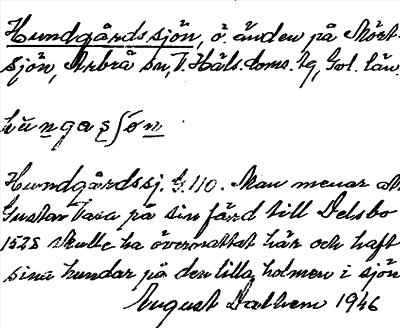 Hundgårdssjön, ö. änden på Mört-
sjön, Arbrå sn, V. Häls. doms. tg, Gvl. län.
hŭngaʂʃǫn
Hundgårdssj. G.110. Man menar at
Gustav Vasa på sin färd till Delsbo
1528 skulle ha övernattat här och haft
sina hundar på den lilla holmen i sjön
August Dalhem 1946